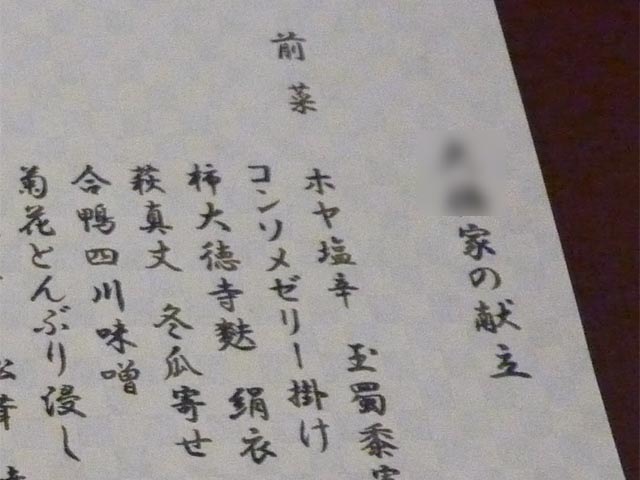 家の献立
前菜
ホヤ塩辛 玉蜀黍
コンソメゼリー掛け
柿大徳寺麩 絹衣
萩真丈 冬瓜寄せ
合鴨四川味噌
菊花とんぶり浸し